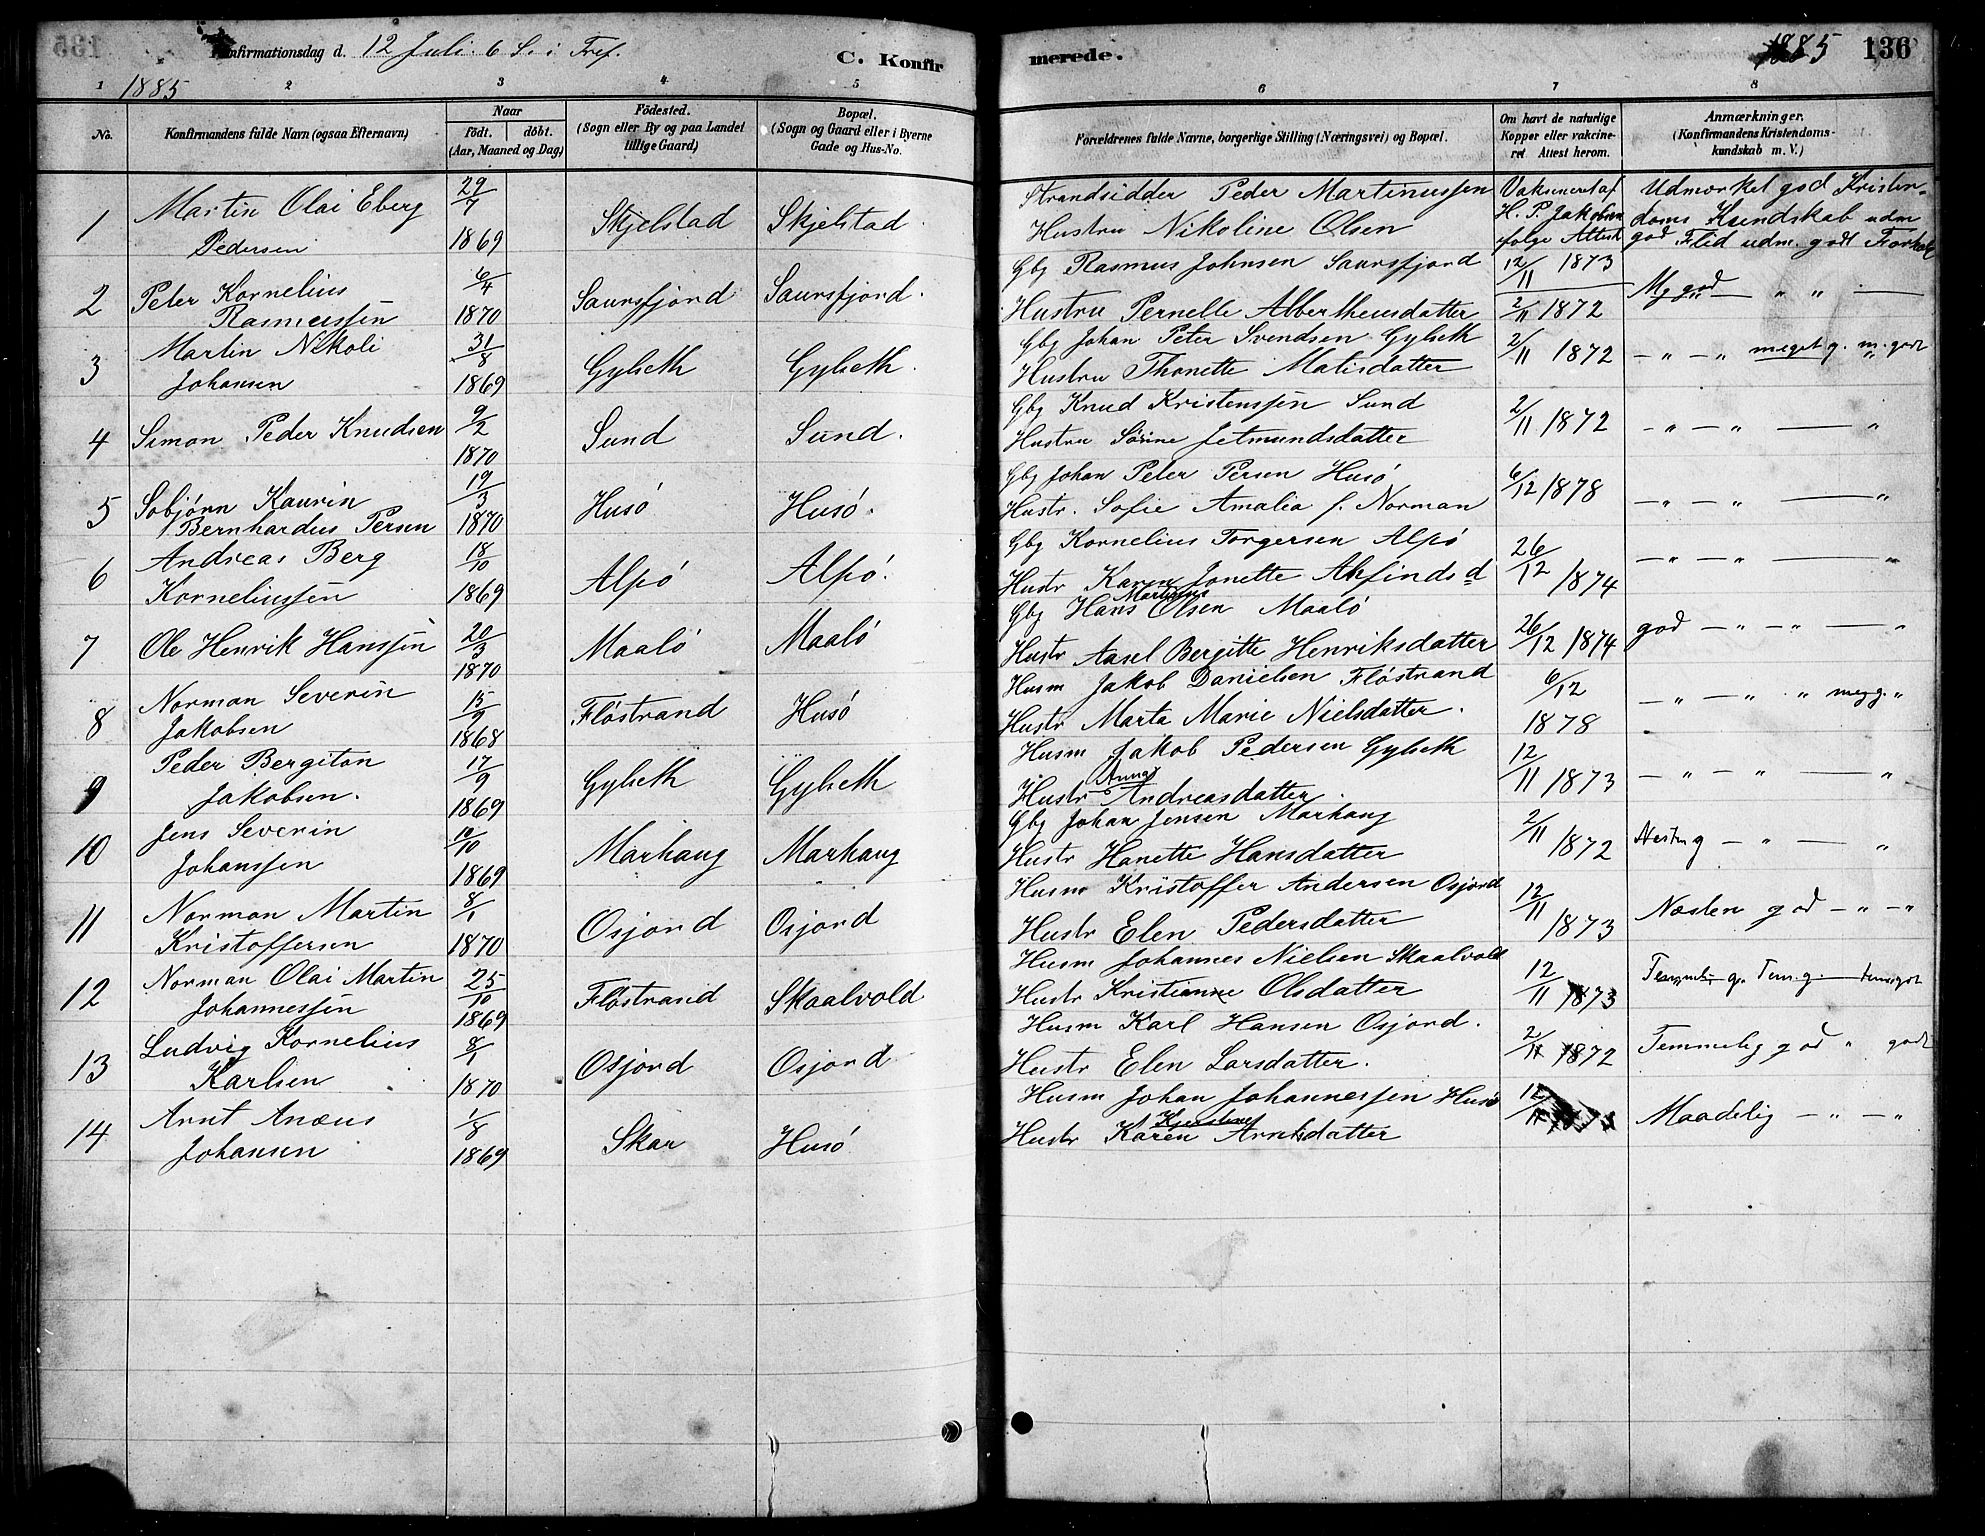 Konfirmationsdag d. 12 Juli 6 S. i Tref. C. Konfirmerede. 1885 136
1885
1 2 3 4 5 6 7 8
No. Konfirmandens fulde Navn (ogsaa Efternavn) Naar født. døbt. (Aar, Maaned og Dag) Fødested. (Sogn eller By og paa Landet tillige Gaard) Bopæl. (Sogn og Gaard eller i Byerne Gade og Hus-No. Forældrenes fulde Navne, borgerlige Stilling (Næringsvei) og Bopæl. Om havt de naturlige Kopper eller vakcineret Attest herom. Anmærkninger. (Konfirmandens Kristendomskundskab m. V.)
1 Martin Olai Eberg Pedersen 29/7 1869 Skjelstad Skjelstad Strandsidder Peder Martinussen Hustru Nikoline Olsen Vaksineret af H. P. Jakobsen følge Attest 12/11 1873 Udmærket god Kristendoms Kundskab udm god Flid udm. godt Forhold
2 Peter Kornelius Rasmussen 6/4 1870 Saursfjord Saursfjord. Gbg Rasmus Johnsen Saursfjord Hustru Pernelle Albertheusdatter 2/11 1872 Mg god — " " —
3 Martin Nikoli Johansen 31/8 1869 Gylseth Gylseth. Gbg Johan Peter Svendsen Gylseth Hustru Thonette Matisdatter 2/11 1872 — " — " meget g. m. godt
4 Simon Peder Knudsen 9/2 1870 Sund Sund. Gbg Knud Kristenssen Sund Hustru Sørine Jetmundsdatter 2/11 1872 — " — " — "
5 Sobjörn Kaurin Bernhardus Persen 19/3 1870 Husö Husö. Gbg Johan Peter Persen Husö Hustr. Sofie Amalia f. Norman 6/12 1878 — " — " — "
6 Andreas Berg Korneliussen 18/10 1869 Alsö Alsö. Gbg Kornelius Torgersen Alsö Hustr Karen Jonette Akfinds d 26/12 1874 — " — " — "
7 Ole Henrik Hanssen 20/3 1870 Maalö Maalö Gbg Hans Martinus Olsen Maalö Hustr Aasel Bergitte Henriksdatter 26/12 1874 god — " — " — "
8 Norman Severin Jakobsen 15/9 1868 Flöstrand Husö Husm Jakob Danielsen Flöstrand Hustr Marta Marie Nielsdatter. 6/12 1878 — " — " " meg g. "
9 Peder Bergiton Jakobsen. 17/9 1869 Gylseth Gylseth Husm Jakob Pedersen Gylseth Hustr Anna Andreasdatter. 12/11 1873 — " — " — "
10 Jens Severin Johanssen 10/10 1869 Marhaug Marhaug Gbg Johan Jensen Marhaug Hustr Hanette Hansdatter 2/11 1872 Nesten g — " — "
11 Norman Martin Kristoffersen 8/1 1870 Osjord Osjord Husm Kristoffer Andersen Osjord Hustr Elen Pedersdatter 12/11 1873 Næsten god — " — "
12 Norman Olai Martin Johannessen 25/10 1869 Flöstrand Skaalvold Husm Johannes Nielsen Skaalvold Hustr Kristianne Olsdatter 12/11 1873 Temmelig g. Tem. g. — tem godt
13 Ludvig Kornelius Karlsen 8/1 1870 Osjord Osjord Husm Karl Hansen Osjord. Hustr Elen Larsdatter. 2/11 1872 Temmelig god " godt
14 Arnt Anæus Johansen 1/8 1869 Skar Husö Husm Johan Johannessen Husö Hustr Karen Kjerstine Arntsdatter 12/11 1873 Maadelig — " — "